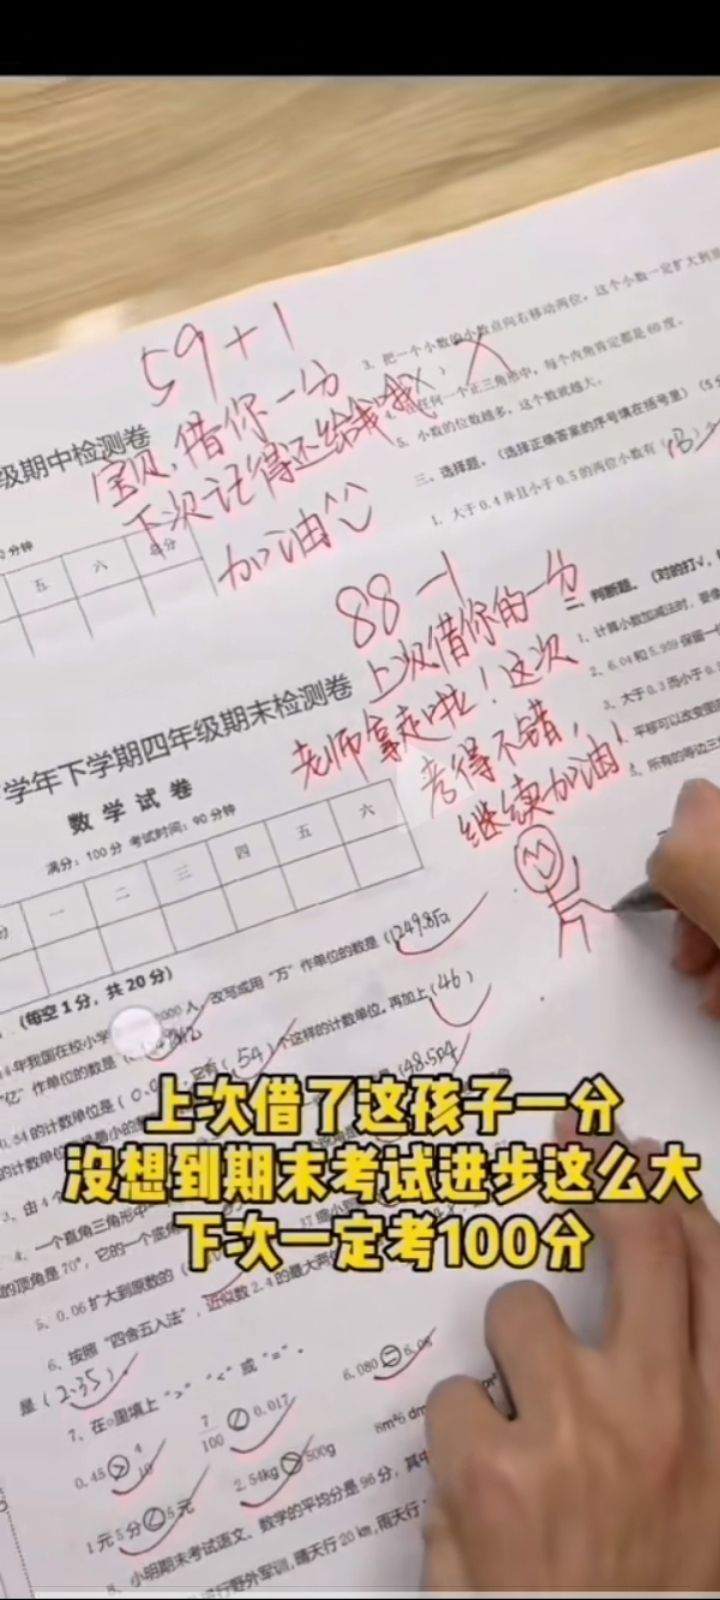 59+1
宝贝,借你一分
下次记得还给我哦
加油
级期中检测卷
0分钟
五 六 总分
3、把一个小数的小数点向右移动两位,这个小数一定扩大到原
任何一个正三角形中,每个内角肯定都是60度。
5、小数的位数越多,这个数就越大。
三、选择题。(选择正确答案的序号填在括号里)(5分
1、大于0.4并且小于0.5的两位小数有(B)个
88-1
上次借你的一分
老师拿走啦!这次
考得不错,
继续加油!
二、判断题。(对的打√,
1、计算小数加减法时,要像
2、6.04和5.959保留一位
3、大于0.3而小于0.
平移可以改变图
5、所有的等边三
学年下学期四年级期末检测卷
数学试卷
满分:100分 考试时间:90分钟
分 一 二 三 四 五 六
(每空1分,共20分)
年我国在校小学 000人,改写成用“万”作单位的数是(
“亿”作单位的数是(
0.54的计数单位是(0.0 ,它有(54)个这样的计数单位。再加上(46)
的计数单位 最小的
(48.504
3、由4个
4、一个直角三角形中
的顶角是70°,它的一个底角
5、0.06扩大到原数的(
6、按照“四舍五入法”,近似数2.4的最大两位
是(2.35)。
7、在○里填上“>”“<”或“=”。
0.45>4/10 7/100 0.017 6.080=6.08
1元5分<5元 2.54kg>500g 8m²6dm
8、小明期末考试语文、数学的平均分是96分,其中
进行野外军训,晴天行20km,雨天行
上次借了这孩子一分
没想到期末考试进步这么大
下次一定考100分